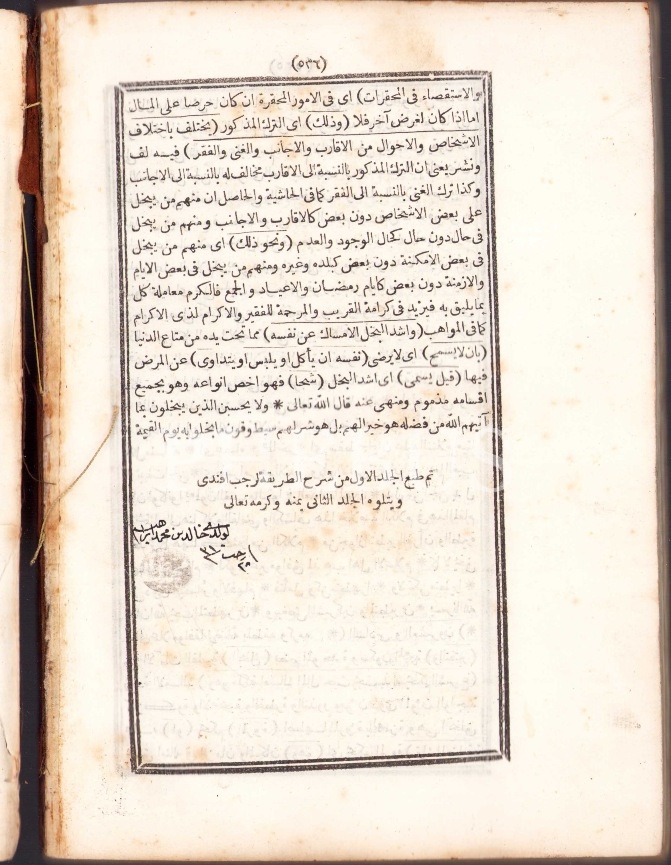 (٥٣٦)
والاستقصاء فى المحقرات) اى فى الامور المحقرة ان كان حرضا على المال
اما اذا كان لغرض آخر فلا (وذلك) اى الترك المذكور (يختلف باختلاف
الاشخاص والاحوال من الاقارب والاجانب والغنى والفقر) فيه لف
ونشر يعنى ان الترك المذكور بالنسبة الى الاقارب مخالف له بالنسبة الى الاجانب
وكذا ترك الغنى بالنسبة الى الفقر كما فى الحاشية والحاصل ان منهم من يبخل
على بعض الاشخاص دون بعض كالاقارب والاجانب ومنهم من يبخل
فى حال دون حال كحال الوجود والعدم (ونحو ذلك) اى منهم من يبخل
فى بعض الامكنة دون بعض كبلده وغيره ومنهم من يبخل فى بعض الايام
والازمنة دون بعض كايام رمضان والاعياد والجمع فالكرم معاملة كل
بما يليق به فيزيد فى كرامة القريب والمرحمة للفقير والاكرام لذى الاكرام
كما فى المواهب (واشد البخل الامساك عن نفسه) مما تحت يده من متاع الدنيا
(بان لا يسمح) اى لا يرضى (نفسه ان يأكل او يلبس او يتداوى) عن المرض
فيها (قيل يسمى) اى اشد البخل (شحا) فهو اخص انواعه وهو بجميع
اقسامه مذموم ومنهى عنه قال الله تعالى * ولا يحسبن الذين يبخلون بما
آتيهم الله من فضله هو خيرا لهم بل هو شر لهم سيطوقون ما بخلوا به يوم القيمة
تم طبع الجلد الاول من شرح الطريقة لرجب افندى
ويتلوه الجلد الثانى بمنه وكرمه تعالى
خالد بن محمد
رجب